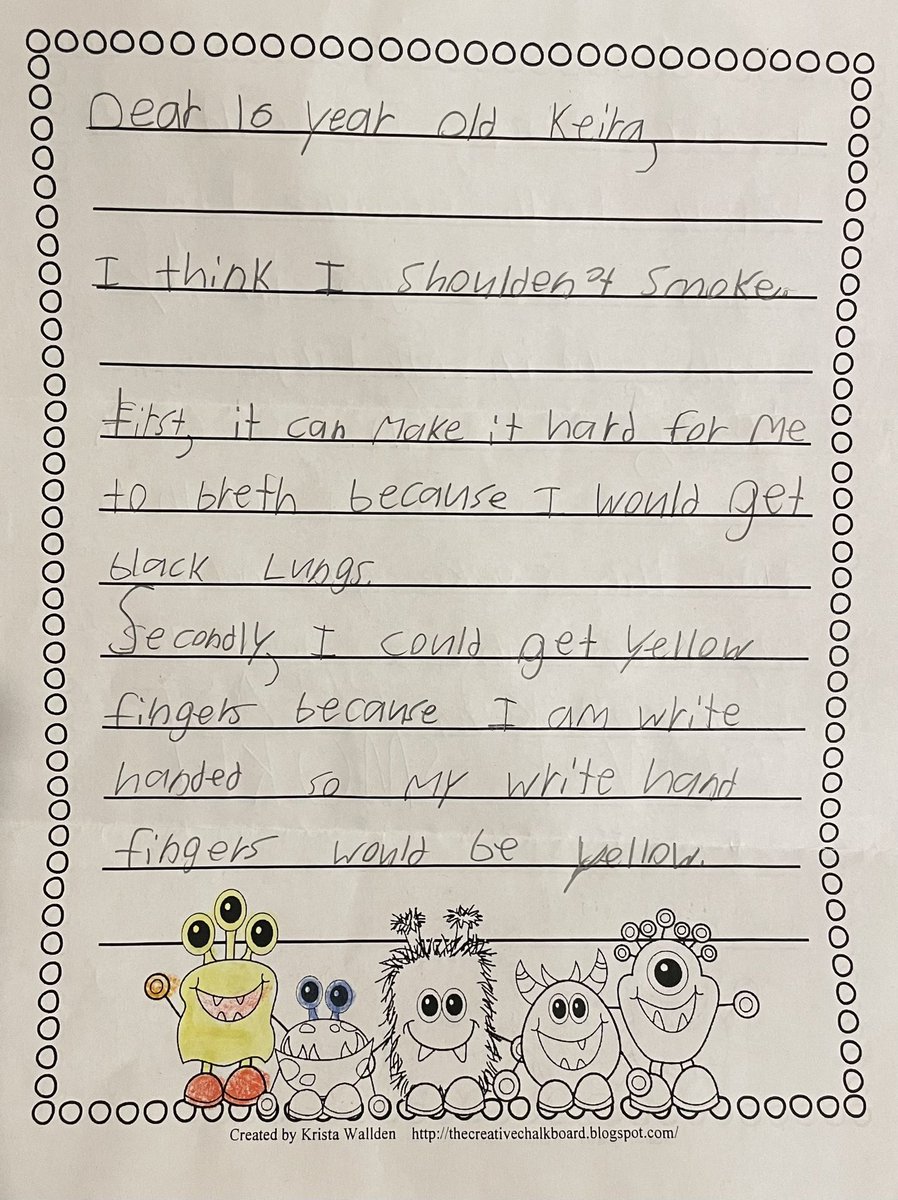 Dear 16 year old Keira,
I think I shoulden't smoke.
First, it can make it hard for me
to breth because I would get
black Lungs.
Secondly, I could get yellow
fingers because I am write
handed so my write hand
fingers would be yellow.
Created by Krista Wallden http://thecreativechalkboard.blogspot.com/